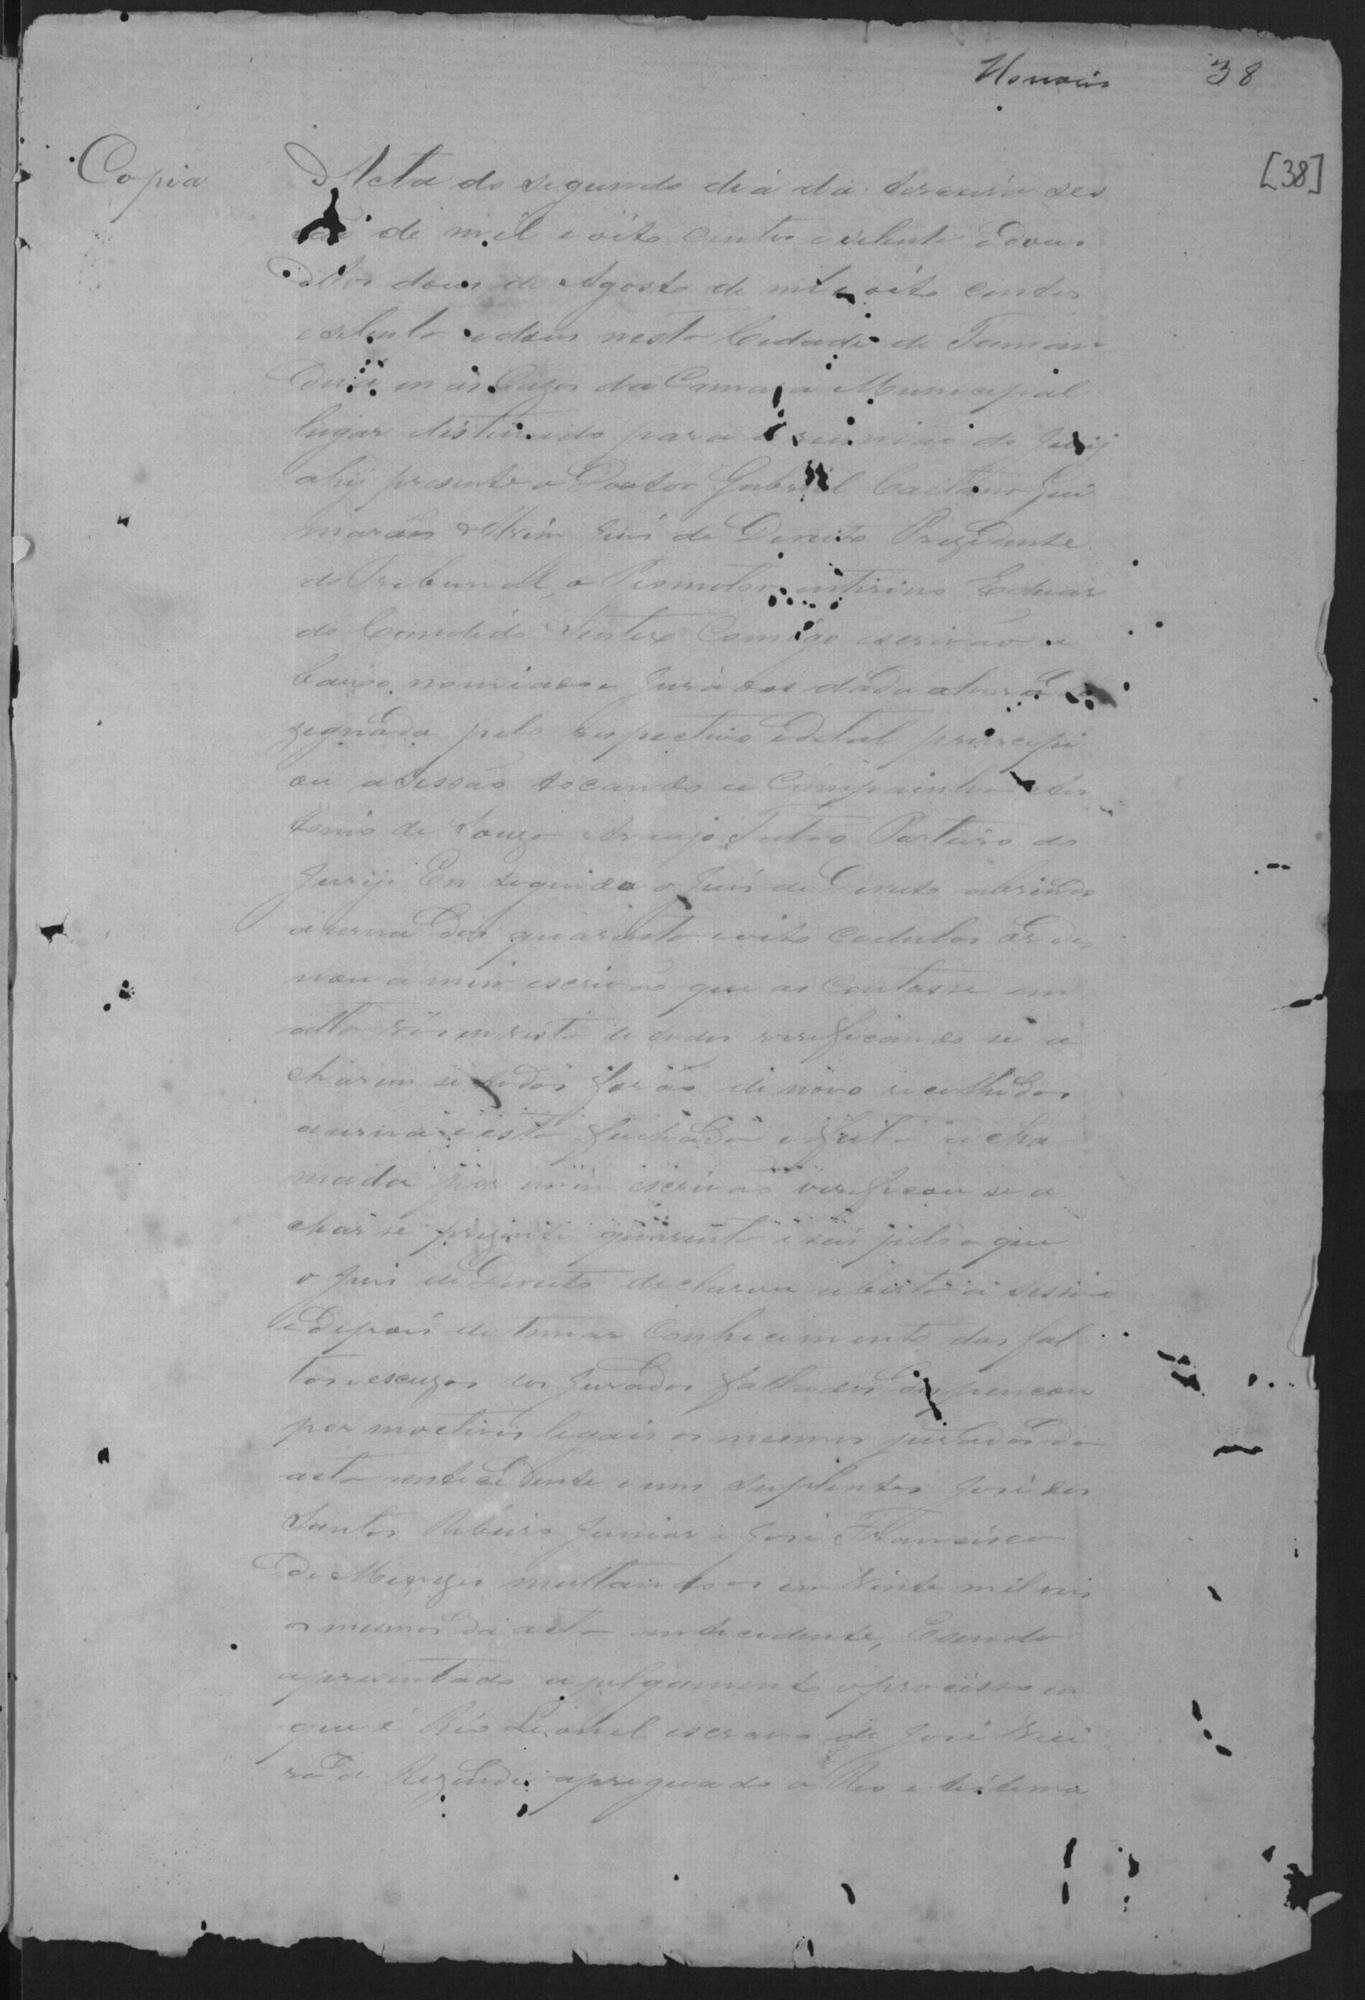 38
[38]
Copia
Acta do segundo dia da terceira ses
são de mil e oito centos e setenta e dous
Aos dous de Agosto de mil e oito centos
e setenta e dous nesta Cidade de Taman
duá em as Cazas da Camara Municipal
lugar distinado para a reunião do Jury
ahy presente o Doutor Gabriel Caetano Gui
marães Juis de Direito Prezidente
do Tribunal, o Promotor interino Eduar
do Candido Comigo escrivão a
baixo nomiado e Jurados dada a hora
zignada pelo respectivo Edital principi
ou a sessão tocando a Campainha An
tonio de Souza Araujo Porteiro do
Jury. Em seguida o Juis de Direito abrindo
a urna das quarenta e oito cedulas orde
nou a mim escrivão que as contasse em
alta vós em vista de todos verificando se a
charem se todas forão de novo recolhidas
a urna e esta fechada e feita a cha
mada por mim escrivão verificou se a
char se prezente quarenta e seis pelo que
o Juis de Direito declarou aberta a sessão
e depois de tomar conhecimento das fal
tas e escuzas dos Jurados faltados dispençou
por motivos legais os mesmos jurados da
acta antecedente e uns suplentes José dos
Santos Ribeiro Junior e José Francisco
de Menezes multando os em vinte mil reis
os mesmos da acta antecedente, E sendo
apresentado a julgamento o processo em
que é Réo Leonel escravo de José Viei
ra de Rezende apregoado o Reo e